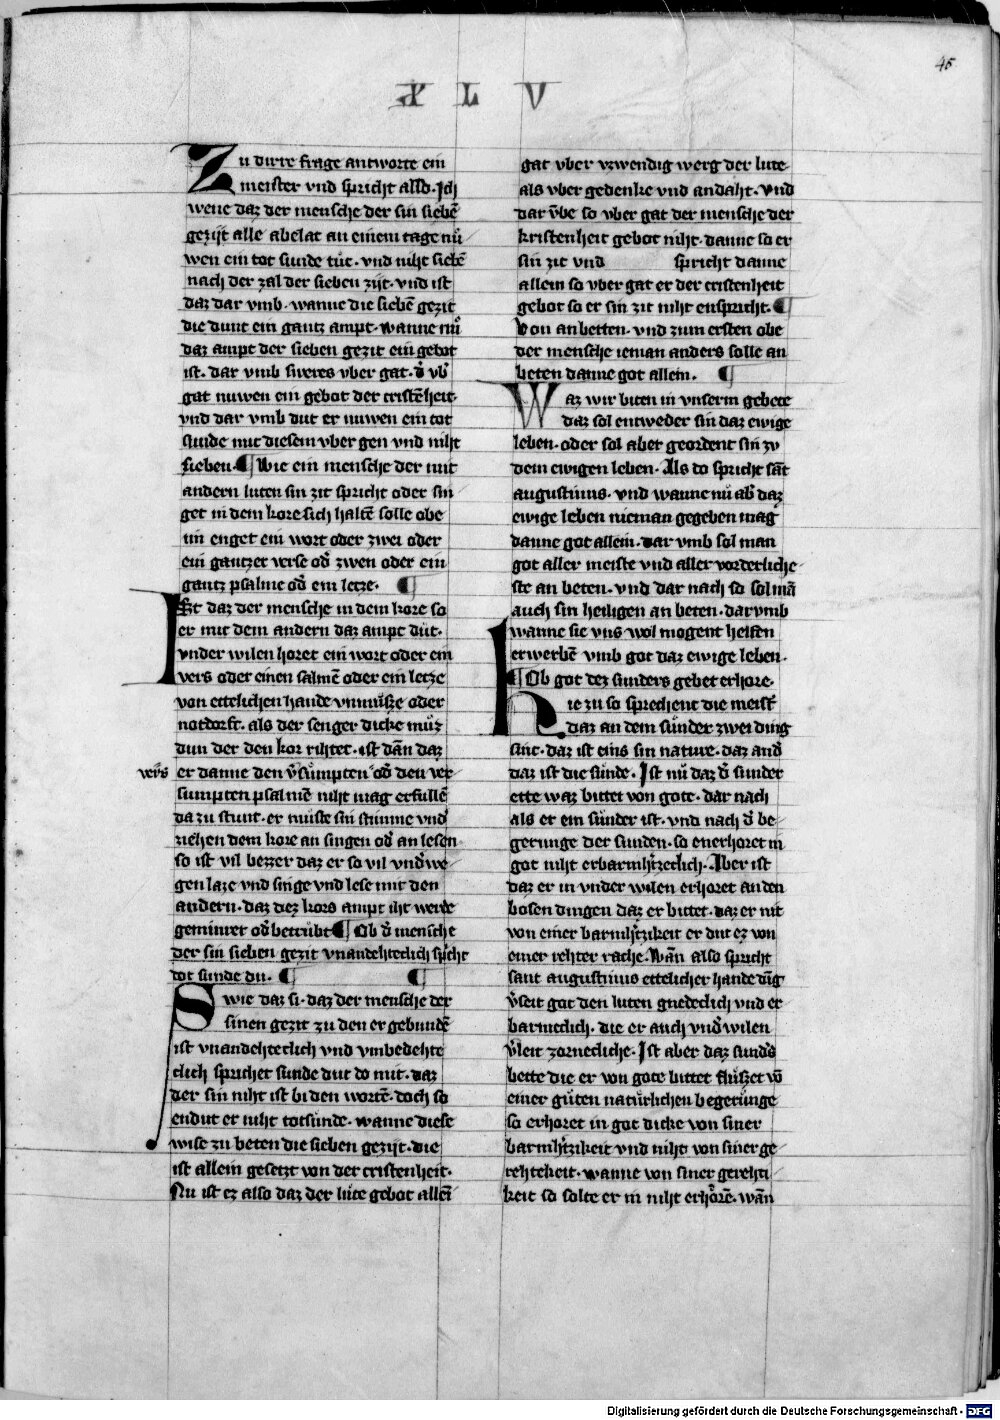 45
XLV
Zu dirre frage antworte ein
meister vnd spricht also. Ich
wene daz der mensche der sin siebē
gezijt alle abelat an einem tage nuͦ
wen ein tot sunde tuͤt. vnd niht siebē
nach der zal der sieben zijt. vnd ist
daz dar vmb. wanne die siebē gezit
die dunt ein gantz ampt. wanne nuͦ
daz ampt der sieben gezit ein gebot
ist. dar vmb sweres vber gat. d̓ vb̓
gat nuwen ein gebot der cristēheit.
vnd dar vmb dut er nuwen ein tot
sunde mit diesem vber gen vnd niht
sieben. ¶ Wie ein mensche der mit
andern luten sin zit spricht oder sin
get in dem kore sich haltē solle obe
im enget ein wort oder zwei oder
ein gantzer verse od̓ zwen oder ein
gantz psalme od̓ ein letze. ¶
Ist daz der mensche in dem kore so
er mit dem andern daz ampt duͤt.
vnder wilen horet ein wort oder ein
vers oder einen salmē oder ein letze
von ettelichen hande vnmuͤsze oder
notdorft. als der senger dicke muͤz
dun der den kor rihtet. ist dān daz
vers er danne den v̓suͤmpten od̓ den ver
sumpten psalmē niht mag erfullē
da zu stunt. er muste sin stimme vnd̓
ziehen dem kore an singen od̓ an lesen
so ist vil bezzer daz er so vil vnd̓we
gen laze vnd singe vnd lese mit den
andern. daz dez kors ampt iht werde
geminret od̓ betruͤbt ¶ Ob d̓ mensche
der sin sieben gezit vnandehteclich sp̓cht
tot sunde du. ¶ ¶
Swie daz si. daz der mensche der
sinen gezit zu den er gebundē
ist vnandehteclich vnd vnbedehte
clich sprichet sunde dut do mit. daz
der sin niht ist bi den wortē. doch so
endut er niht totsuͤnde. wanne diese
wise zu beten die sieben gezijt. die
ist allein gesetzt von der cristenheit.
Nu ist ez also daz der luͤte gebot allein
gat vber vzwendig werg der lute
als vber gedenke vnd andaht. vnd
dar vͤbe so vber gat der mensche der
kristenheit gebot niht. danne so er
sin zit vnd spricht danne
allein so vber gat er der cristenheit
gebot so er sin zit niht enspricht. ¶
Von anbetten. vnd zum ersten obe
der mensche ieman anders solle an
beten danne got allein. ¶
Waz wir biten in vnserm gebete
daz sol entweder sin daz ewige
leben. oder sol aber geordent sin zu
dem ewigen leben. Als do spricht sāt
augustinus. vnd wanne nuͦ ab̓ daz
ewige leben nieman gegeben mag
danne got allein. dar vmb sol man
got aller meiste vnd aller vorderliche
ste an beten. vnd dar nach so sol mā
auch sin heiligen an beten. dar vmb
wanne sie vns wol mogent helfen
erwerbē vmb got daz ewige leben.
¶ Ob got dez sunders gebet erhore.
Hie zu so sprechent die meist̓
daz an dem suͤnder zwei ding
sint. daz ist eins sin nature. daz and̓
daz ist die suͤnde. Ist nuͦ daz d̓ sunder
ette waz bittet von gote. dar nach
als er ein suͤnder ist. vnd nach d̓ be
gerunge der sunden. so enerhoret in
got niht erbarmh̓tzeclich. Aber ist
daz er in vnder wilen erhoret an den
bosen dingen daz er bittet. daz er nit
von einer barmh̓tzikeit er dut ez von
einer rehter rache. Wān also spricht
sant augustinus ettelicher hande dīg
v̓seit got den luten gnedeclich vnd er
barmeclich. die er auch vnd̓wilen
v̓leit zornecliche. Ist aber daz sund̓s
bette die er von gote bittet fluͤszet vō
einer guͤten natuͤrlichen begeruͤnge
so erhoret in got dicke von siner
barmh̓tzikeit vnd niht von siner ge
rehtekeit. wanne von siner gerehti
keit so solte er in niht erhoͤrē. wān
Digitalisierung gefördert durch die Deutsche Forschungsgemeinschaft - DFG